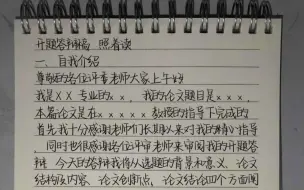 开题答辩稿 照着读
一、自我介绍
尊敬的各位评审老师大家上午好
我是XX专业的xx，我的论文题目是xxx，
本篇论文是在xxxx教授的指导下完成的
首先我十分感谢老师们长期以来对我的精心指导
同时也很感谢各位评审老师来审阅我的开题答
辩 今天的答辩我将从选题的背景和意义、论文
结构及内容、论文创新点，论文结论四个方面阐